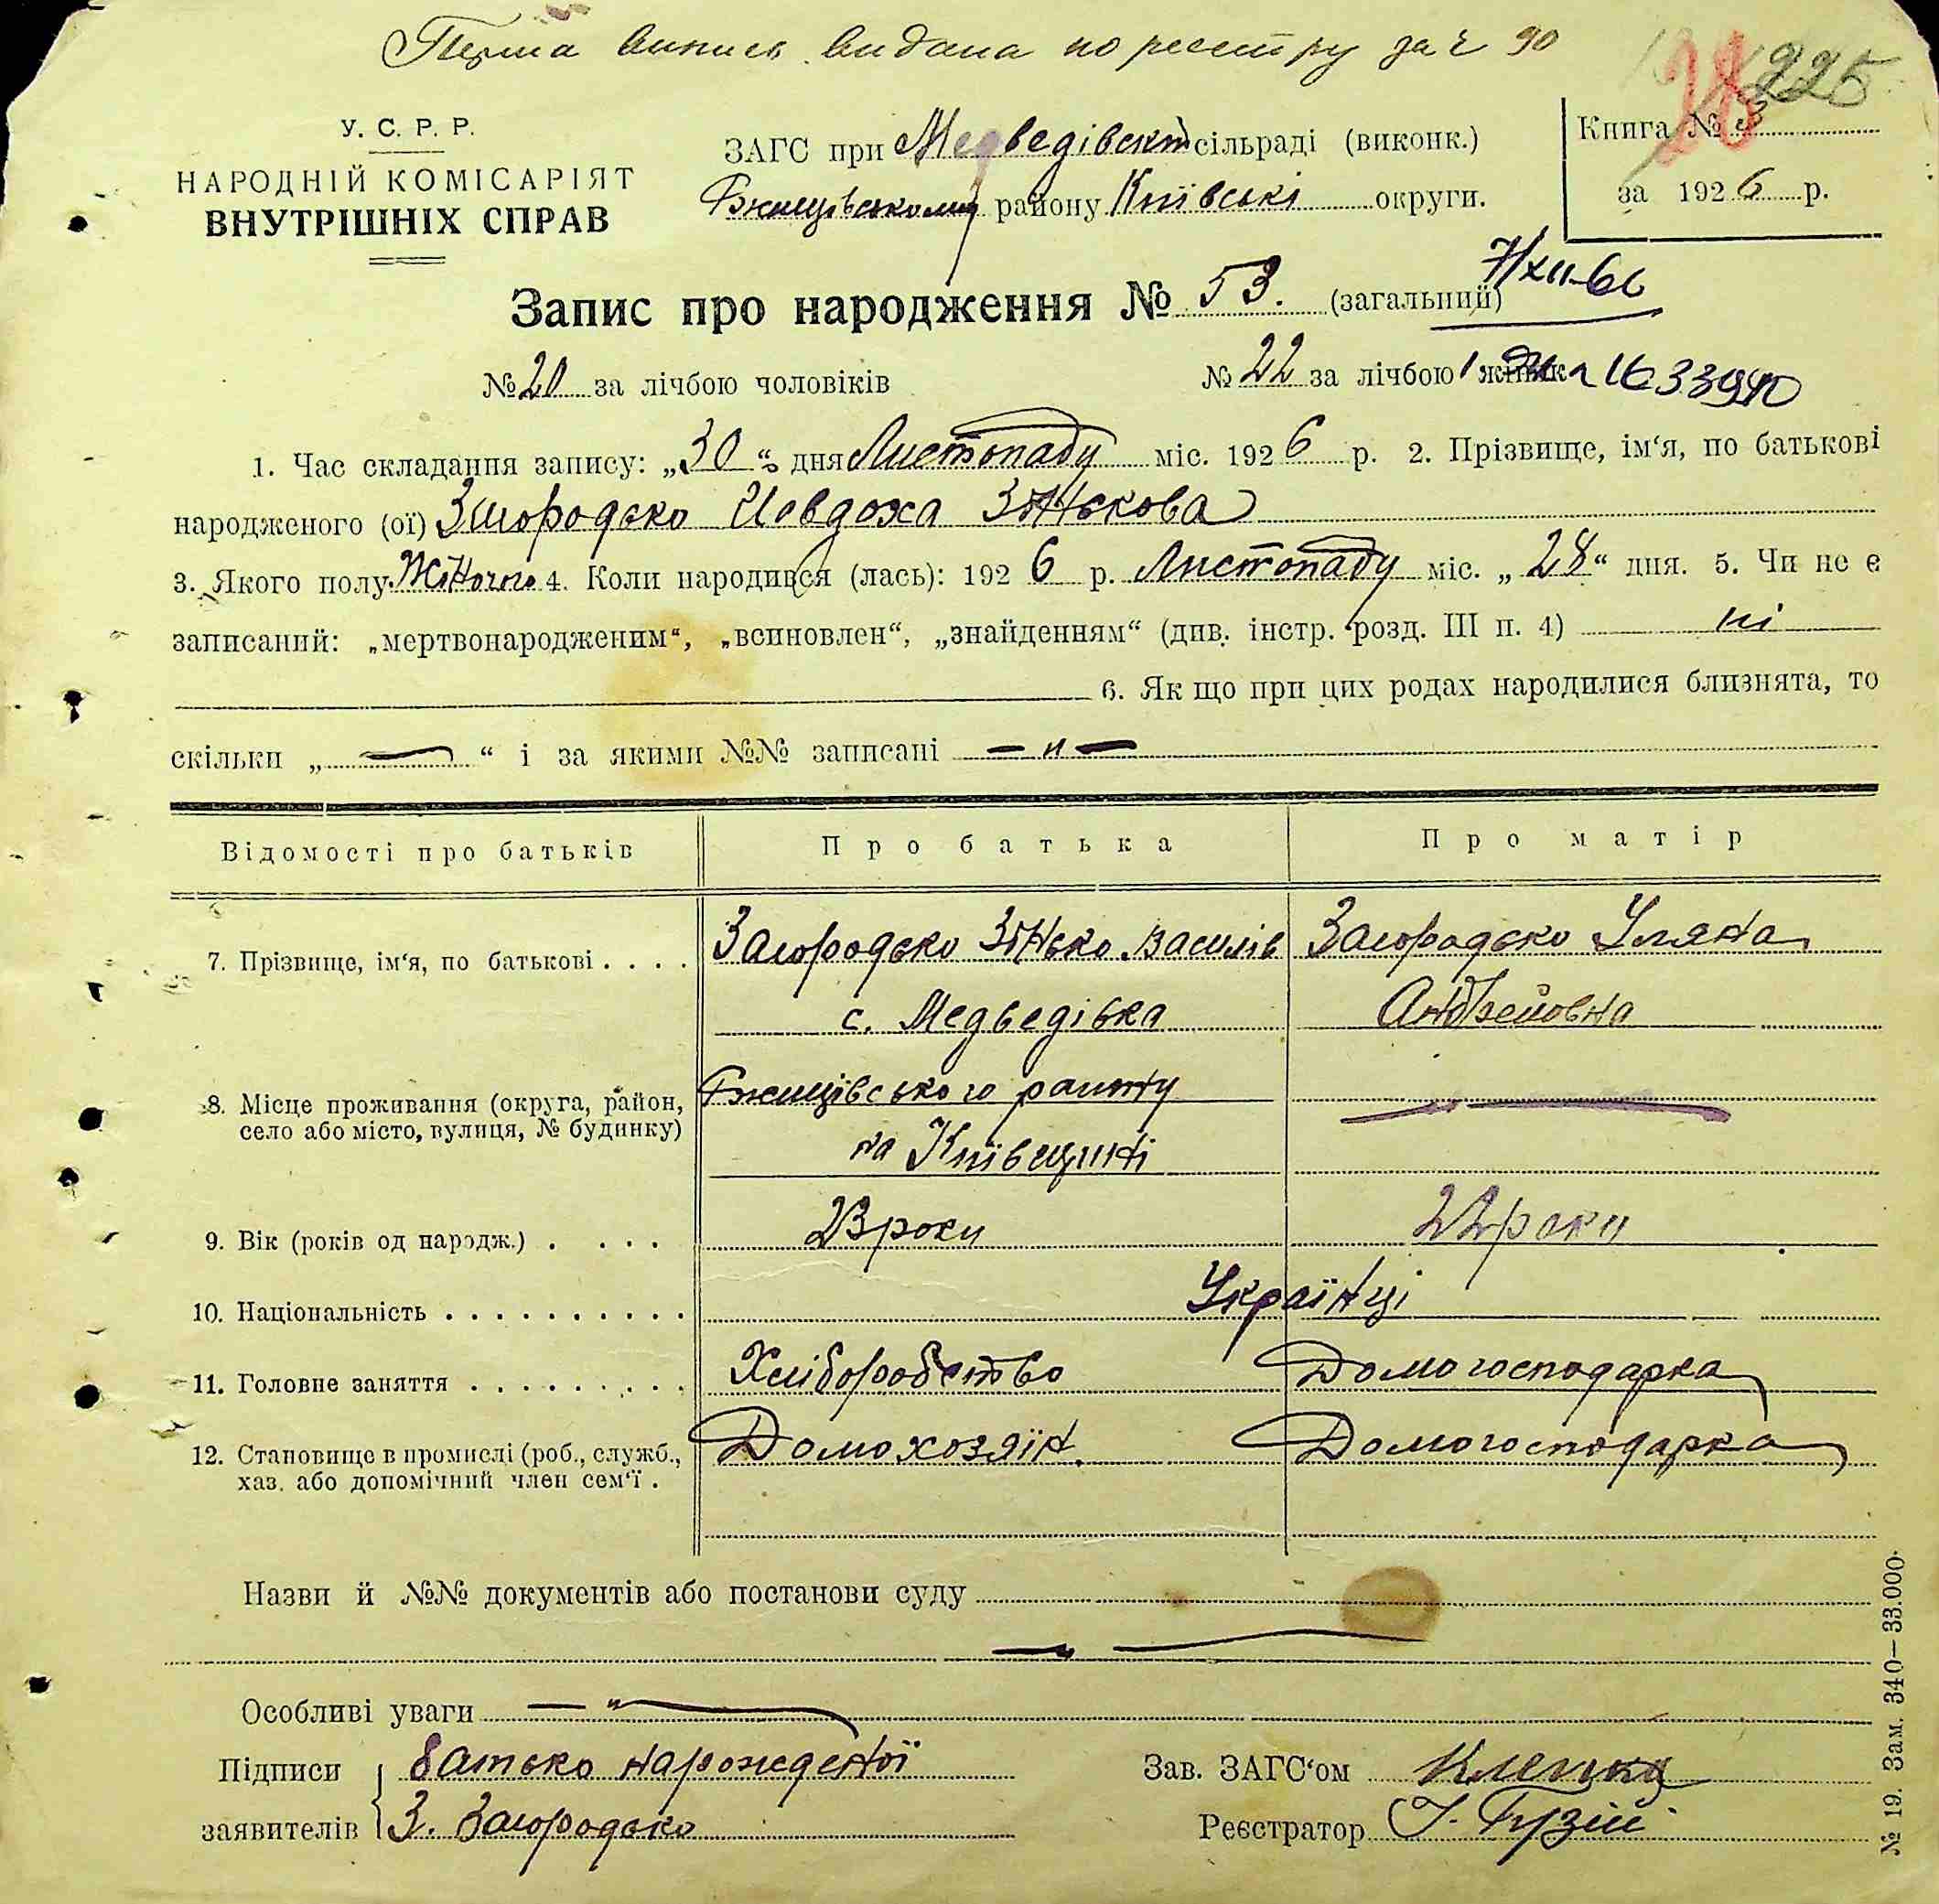 Перша випись видана по реєстру за ч 90
225
У. С. Р. Р.
НАРОДНІЙ КОМІСАРІЯТ
ВНУТРІШНІХ СПРАВ
ЗАГС при Медведівській сільраді (виконк.)
Ржищівському району Київські округи.
Книга № 3
за 1926 р.
7/XII-66
Запис про народження № 53. (загальний)
№ 20 за лічбою чоловіків
№ 22 за лічбою жінок
1633940
1. Час складання запису: „30“ дня Листопаду міс. 1926 р. 2. Прізвище, ім‘я, по батькові
народженого (ої) Загородько Йовдоха Зінькова
3. Якого полу Жіночого 4. Коли народився (лась): 1926 р. Листопаду міс. „28“ дня. 5. Чи не є
записаний: „мертвонародженим“, „всиновлен“, „знайденням“ (див. інстр. розд. III п. 4) ні
6. Як що при цих родах народилися близнята, то
скільки „ — “ і за якими №№ записані — „ —
Відомості про батьків Про батька Про матір
7. Прізвище, ім‘я, по батькові . . . . Загородько Зінько Василів Загородько Уляна
с. Медведівка Андреіовна
8. Місце проживання (округа, район,
село або місто, вулиця, № будинку)
Ржищівського раіону — „ —
на Київщині
9. Вік (років од народж.) . . . . 23 роки 22 роки
10. Національність . . . . . . . . . . Українці
11. Головне заняття . . . . . . . . . Хліборобство Домогосподарка
12. Становище в промислі (роб., служб.,
хаз. або допомічний член сем‘ї .
Домохозяїн. Домогосподарка
Назви й №№ документів або постанови суду
— „ —
Особливі уваги — „ —
Підписи батько народженої
заявителів З. Загородько
Зав. ЗАГС‘ом
Реєстратор
№ 19. Зам. 340—33.000.